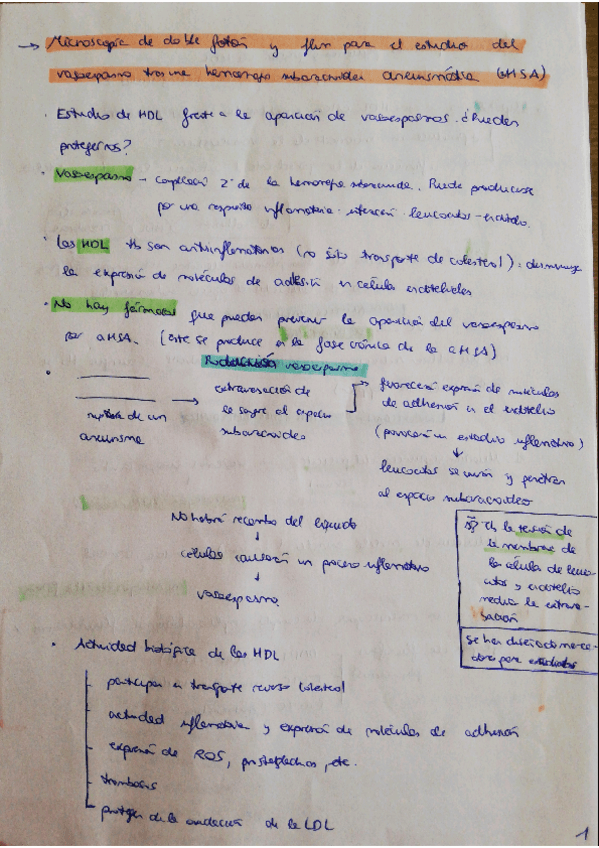 → Microscopía de doble fotón y flim para el estudio del
vasoespasmo tras una hemorragia subaracnoidea aneurismática (aHSA)
· Estudio de HDL frente a la aparición de vasoespasmos. ¿Pueden
protegernos?
· Vasoespasmo - complicación 2ª de la hemorragia subaracnoidea. Puede producirse
por una respuesta inflamatoria: interacción leucocitos-endotelio.
· Las HDL tb son antiinflamatorias (no sólo transporte de colesterol): disminuye
la expresión de moléculas de adhesión en células endoteliales
· No hay fármacos que puedan prevenir la aparición del vasoespasmo
por aHSA. (este se produce en la fase crónica de la aHSA)
Producción vasoespasmo
·
ruptura de un
aneurisma
→ extravasación de
la sangre al espacio
subaracnoideo
→ favorecerá expresión de moléculas
de adhesión en el endotelio
(provocará un estadio inflamatorio)
↓
leucocitos se unirán y penetran
al espacio subaracnoideo
No habrá recambio del líquido
↓
células causarán un proceso inflamatorio
↓
vasoespasmo
la tensión de
la membrana de
la célula de leuco-
citos y endotelio
media la extrava-
sación
Se han diseñado marca-
dores para estudiarlos
· Actividad biológica de las HDL
- participan en transporte reverso colesterol
- actividad inflamatoria y expresión de moléculas de adhesión
- expresión de ROS, prostaglandinas, etc.
- trombosis
- protegen de la oxidación de la LDL
1